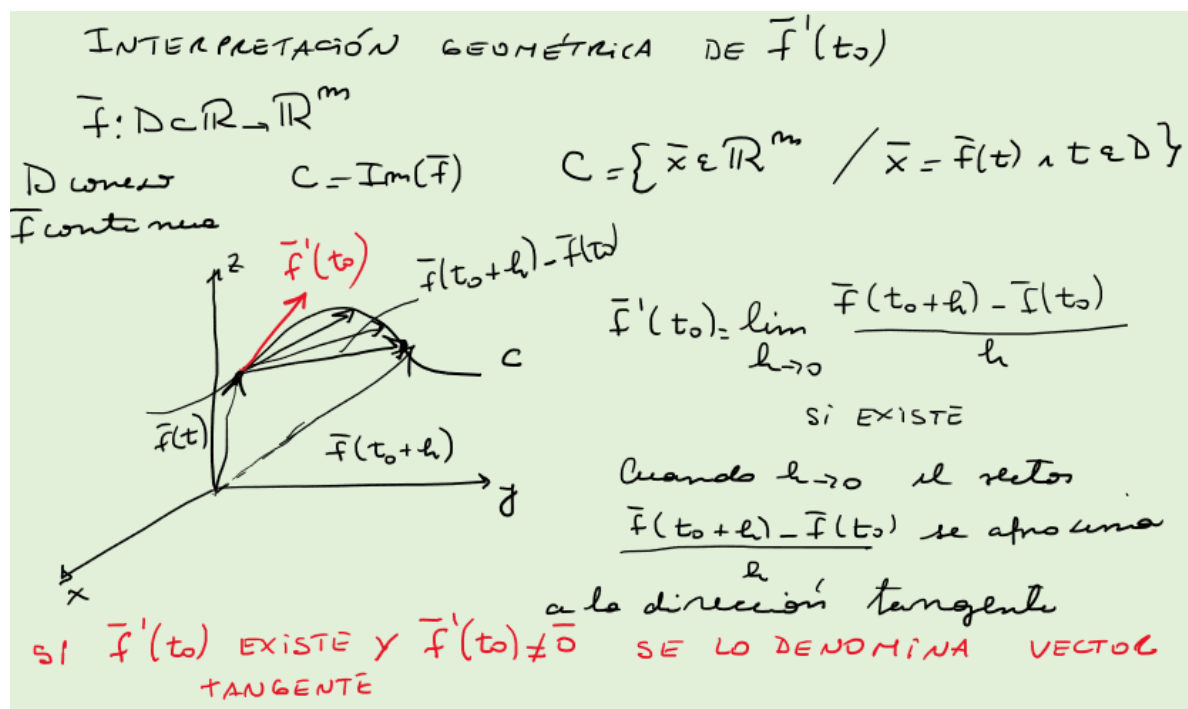 INTERPRETACIÓN GEOMÉTRICA DE f̄'(t₀)
f̄: D⊂ℝ→ℝᵐ
D conexo C = Im(f̄) C = {x̄ ∈ ℝᵐ / x̄ = f̄(t) ∧ t ∈ D}
f̄ continua
z
f̄'(t₀)
f̄(t₀+h) - f̄(t₀)
C
f̄(t)
f̄(t₀+h)
y
x
f̄'(t₀) = lim h→0 (f̄(t₀+h) - f̄(t₀)) / h
Si EXISTE
Cuando h→0 el vector
(f̄(t₀+h) - f̄(t₀)) / h se aproxima
a la dirección tangente
SI f̄'(t₀) EXISTE Y f̄'(t₀) ≠ 0̄ SE LO DENOMINA VECTOR
TANGENTE